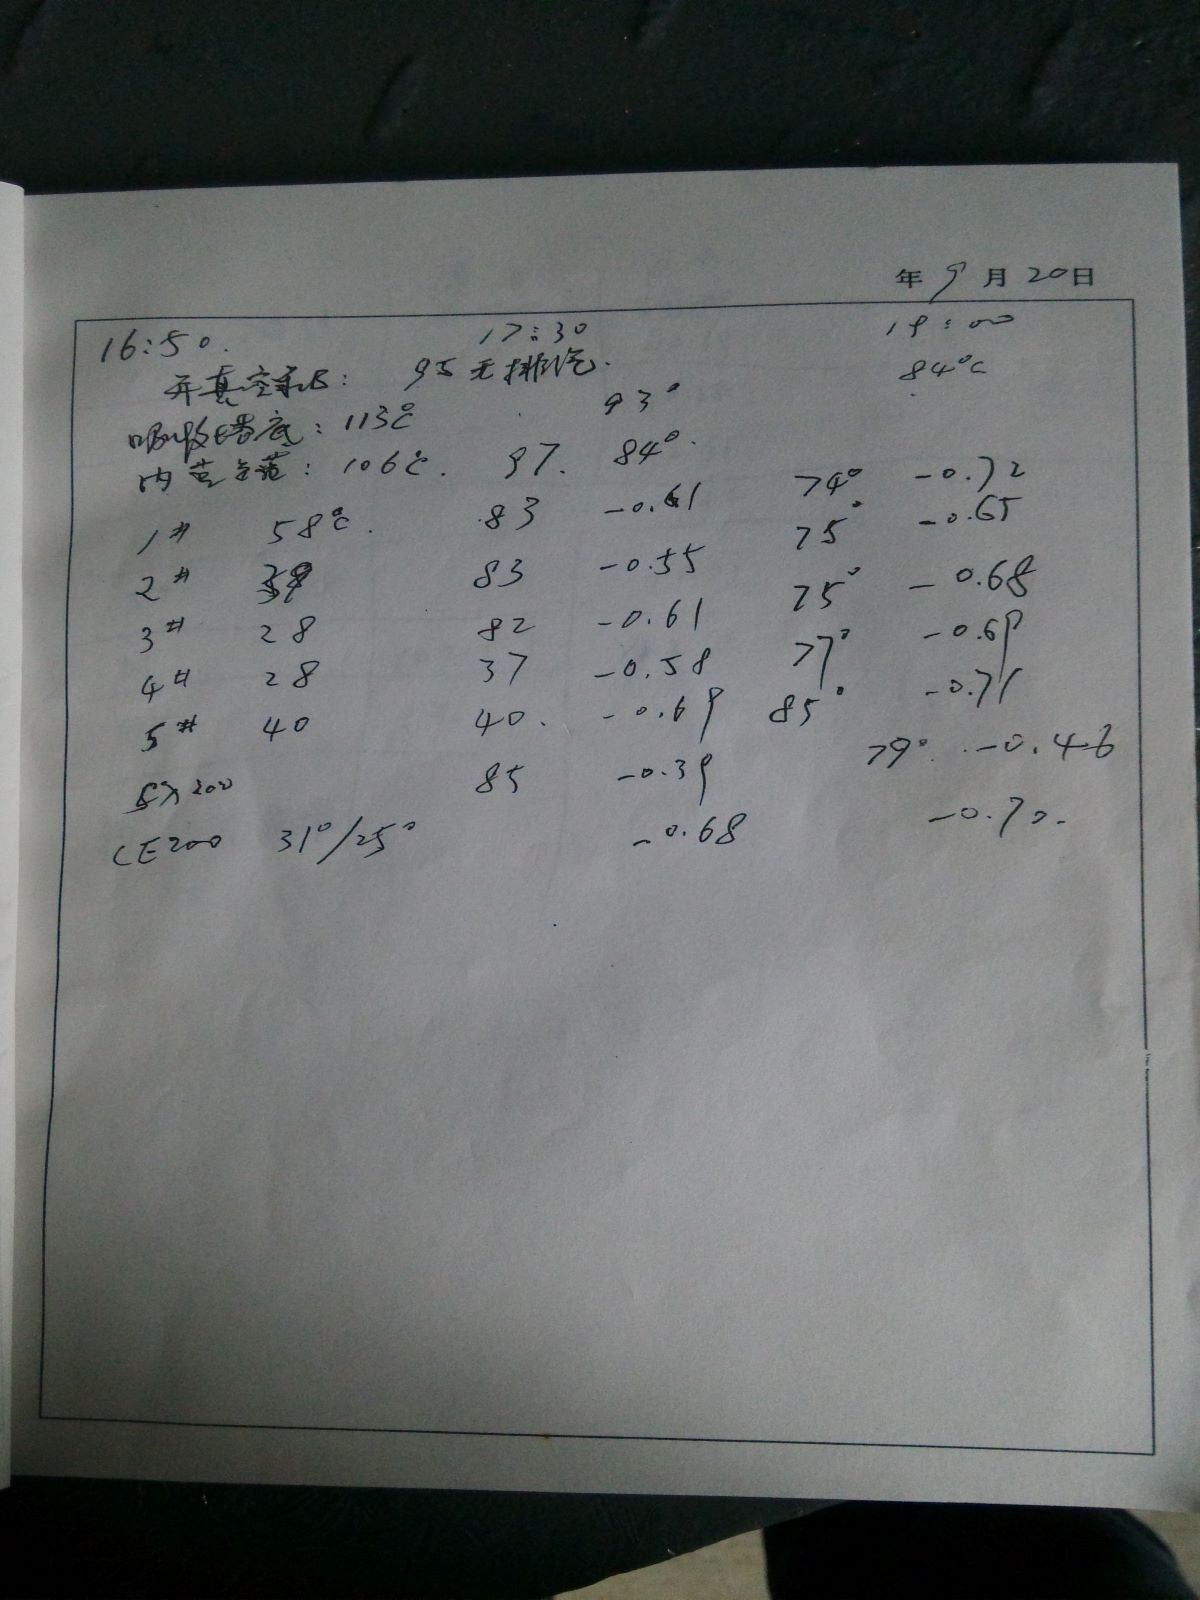 年9月20日
16:50. 17:30 19:00
开真空泵后: 95无排汽. 84°C
吸收塔底: 113°C 93°
内蒸 : 106°C. 97. 84°.
1# 58°C. 83 -0.61 74° -0.72
2# 83 -0.55 75° -0.65
3# 28 82 -0.61 75° -0.68
4# 28 37 -0.58 77° -0.69
5# 40 40. -0.69 85° -0.71
200 85 -0.39 79° -0.46
CE200 31°/25° -0.68 -0.70.